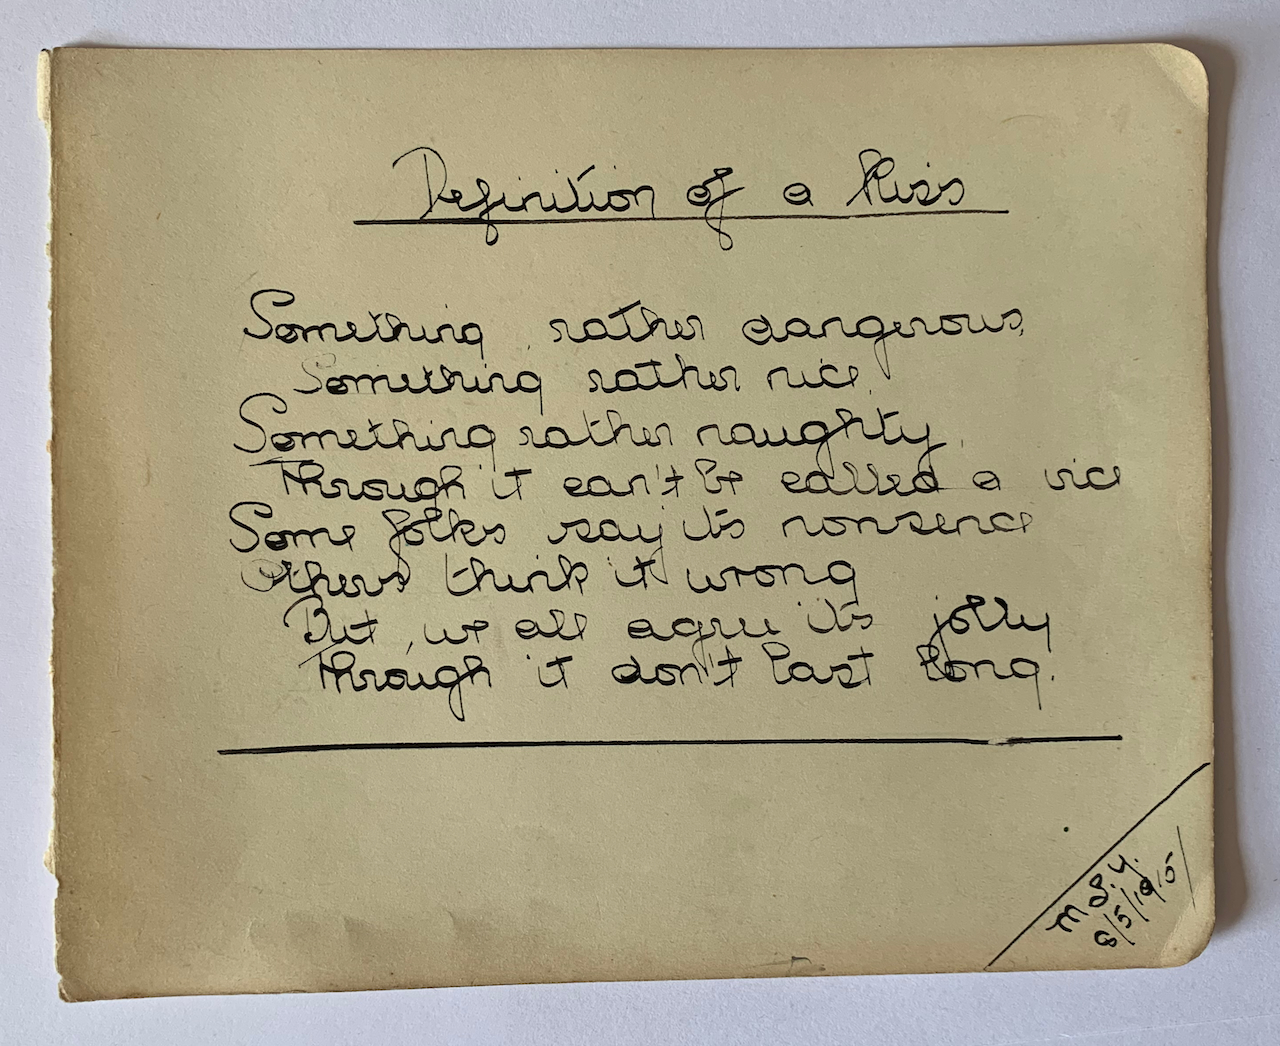 Definition of a Kiss
Something rather dangerous,
Something rather nice,
Something rather naughty,
Through it can't be called a vice
Some folks say its nonsence
Others think it wrong
But we all agree its jolly
Through it don't last long.
M S. Y.
8/5/1915